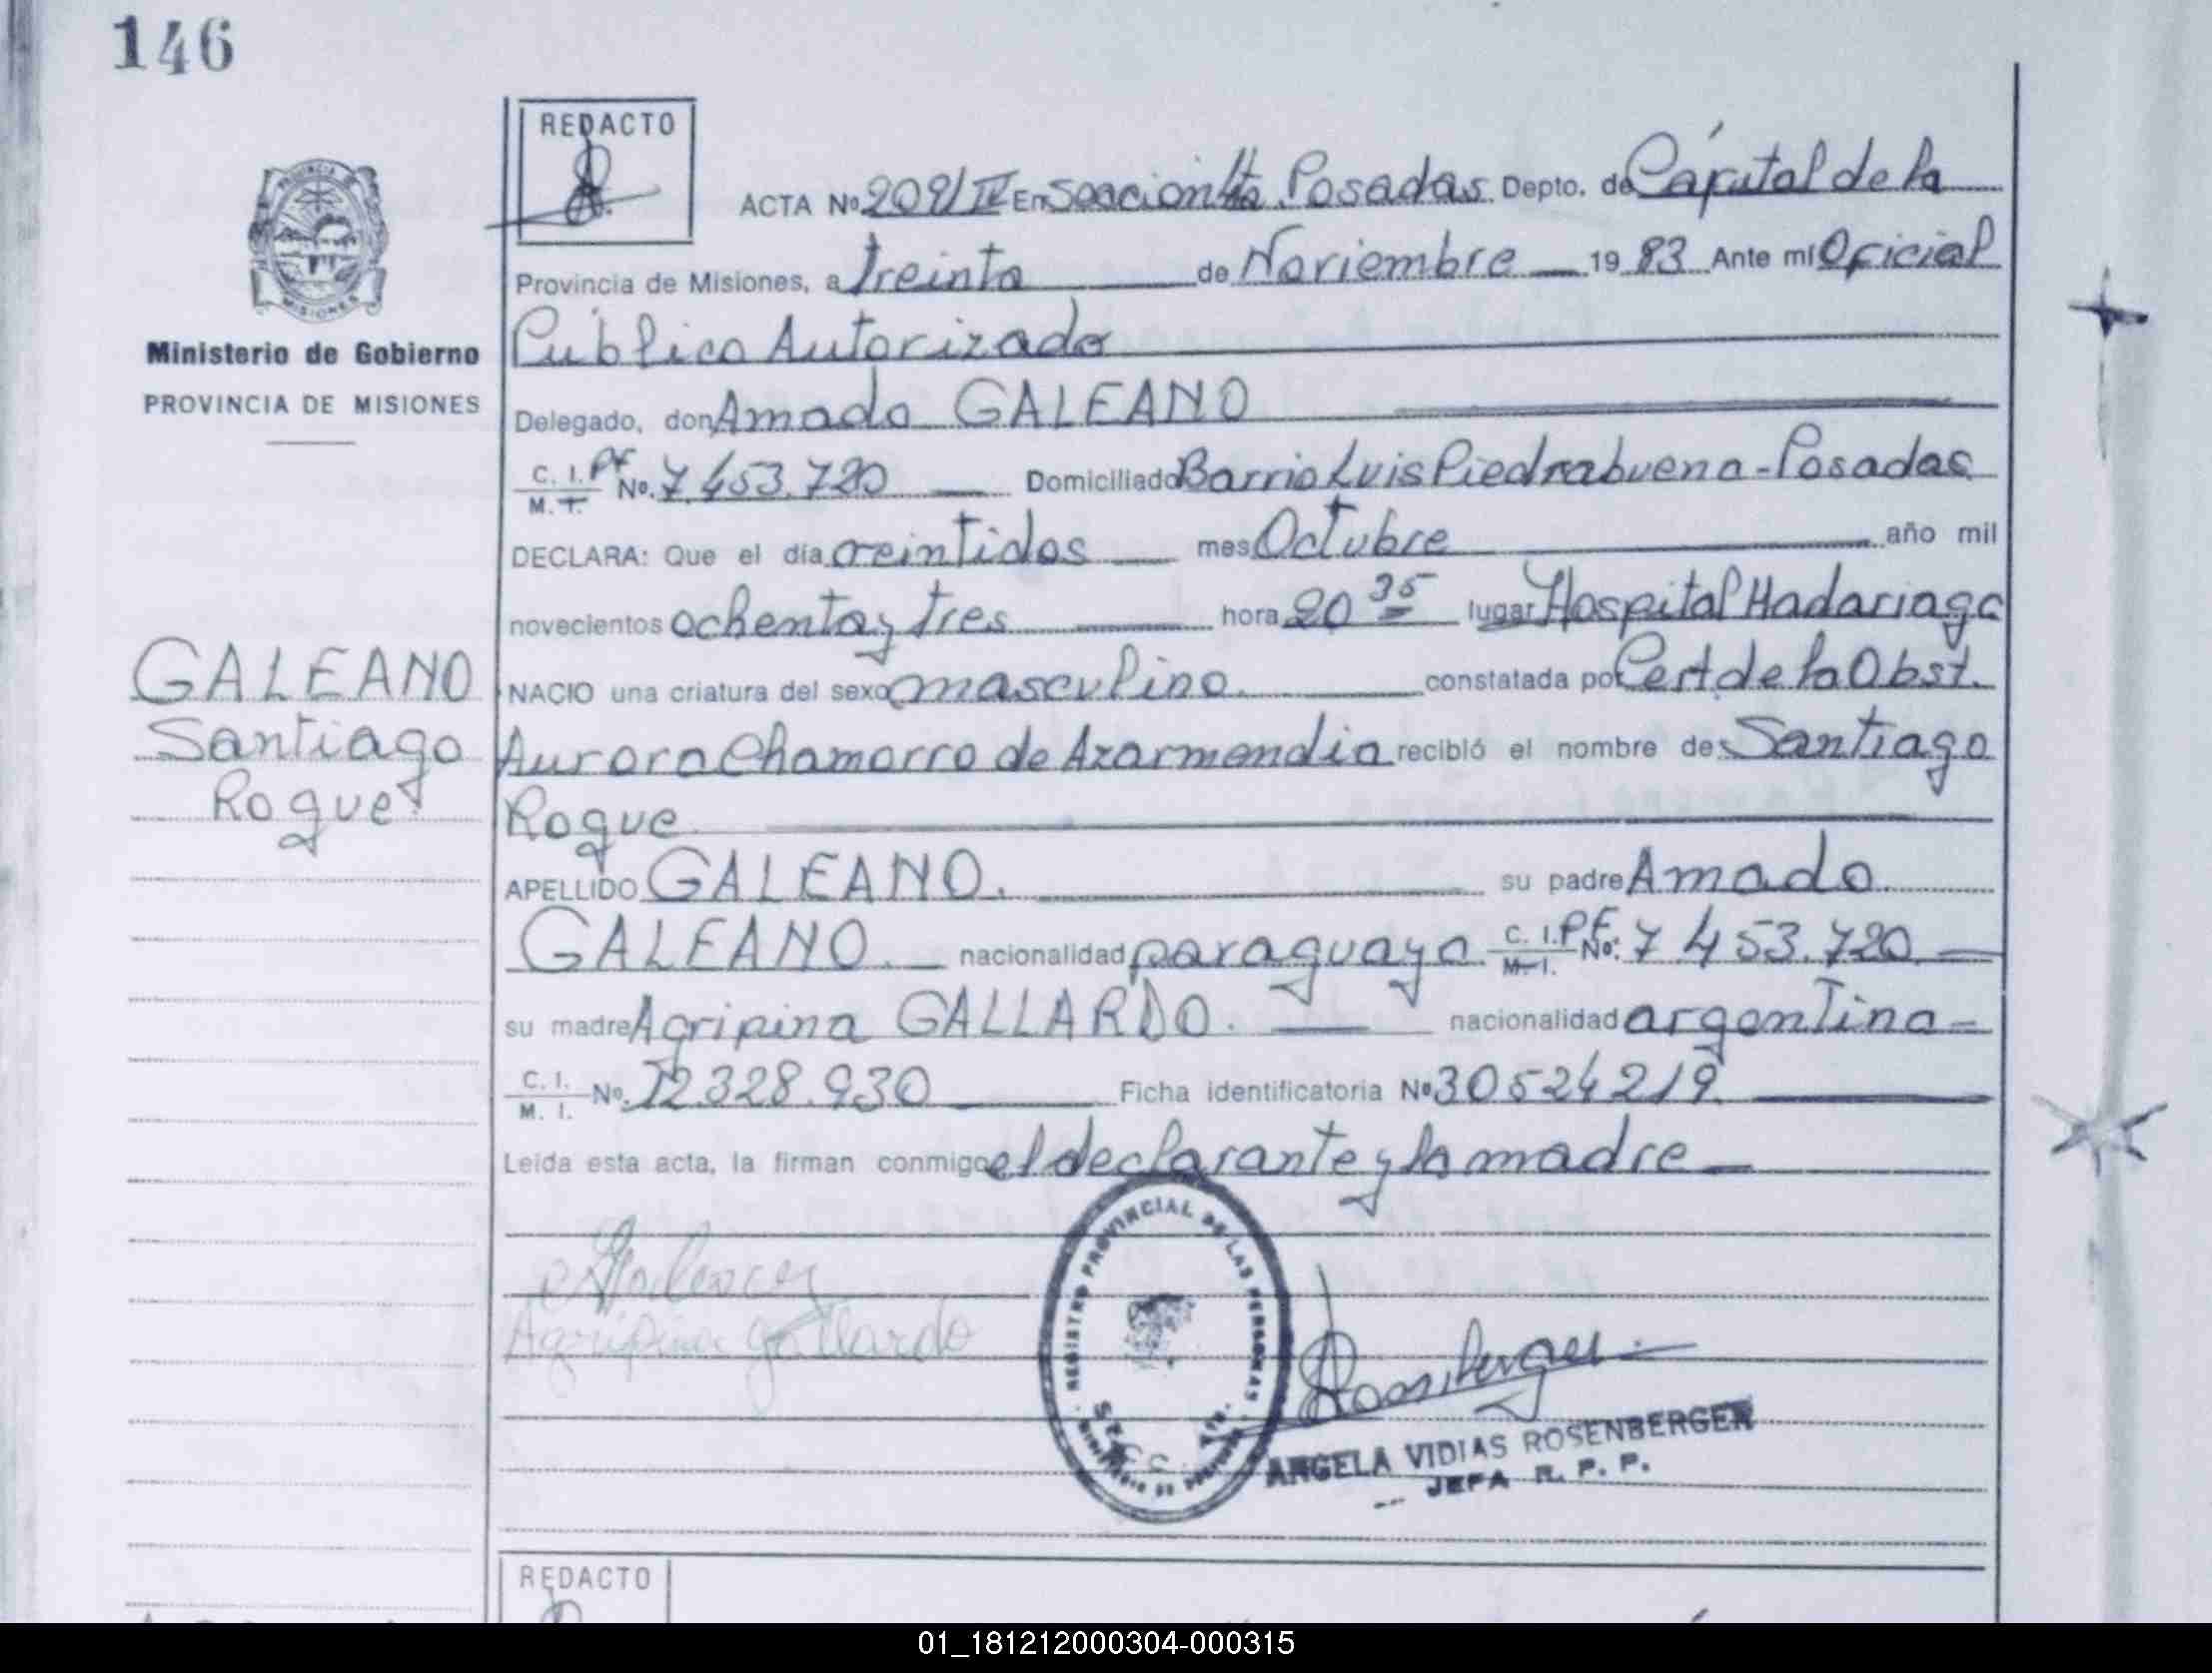 146
REDACTO
ACTA Nº 209/IV En Sección 4ta Posadas. Depto. de Capital de la
Provincia de Misiones, a treinta de Noviembre 1983 Ante mí Oficial
Público Autorizado
PROVINCIA DE
MISIONES
Ministerio de Gobierno
PROVINCIA DE MISIONES
Delegado, don Amado GALEANO
C. I. PF
M. I. No. 7.453.720 Domiciliado Barrio Luis Piedrabuena - Posadas
DECLARA: Que el día veintidos mes Octubre año mil
novecientos ochenta y tres hora 20 35 lugar Hospital Madariaga
GALEANO
Santiago
Roque
NACIO una criatura del sexo masculino. constatada por Cert de la Obst.
Aurora Chamorro de Azarmendia recibió el nombre de: Santiago
Roque
APELLIDO GALEANO. su padre Amado
GALEANO. nacionalidad paraguaya C. I. PF
M. I. No: 7 453.720
su madre Agripina GALLARDO. nacionalidad argentina
C. I.
M. I. No. 12.328.930 Ficha identificatoria Nº 30524219.
Leída esta acta, la firman conmigo el declarante y la madre
Agripina Gallardo
REGISTRO PROVINCIAL DE LAS PERSONAS
Rosenberger
ANGELA VIDIAS ROSENBERGER
JEFA R. P. P.
REDACTO
01_181212000304-000315